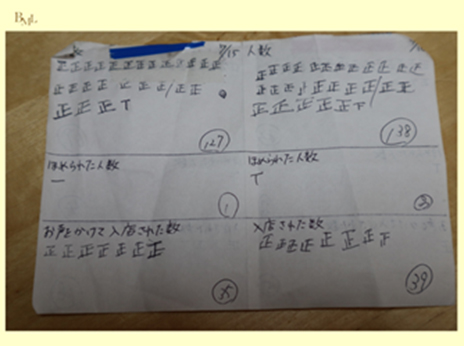 7/15 人数
正正正正正正正正正正正正正
正正正正 正 正 正/正正
正 正 正 T
127
正正正正 正正正正 正正 正正
正正正正 正正正正/正正
正正正正正下
138
ほめられた人数
一
1
ほめられた人数
T
2
お声をかけて入店された数
正正正正正正正
35
入店された数
正正正正正正正
39